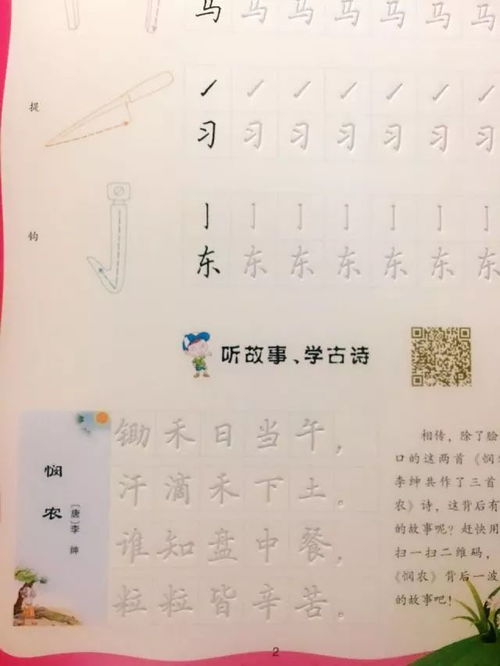 马 马 马 马 马 马 马
提
习 习 习 习 习 习 习
钩
亅 亅 亅 亅 亅 亅 亅
东 东 东 东 东 东 东
听故事、学古诗
悯农
〔唐〕李绅
锄禾日当午，
汗滴禾下土。
谁知盘中餐，
粒粒皆辛苦。
相传，除了脍
口的这两首《悯
李绅共作了三首
农》诗，这背后有
的故事呢？赶快用
扫一扫二维码，
《悯农》背后一波
的故事吧！
2